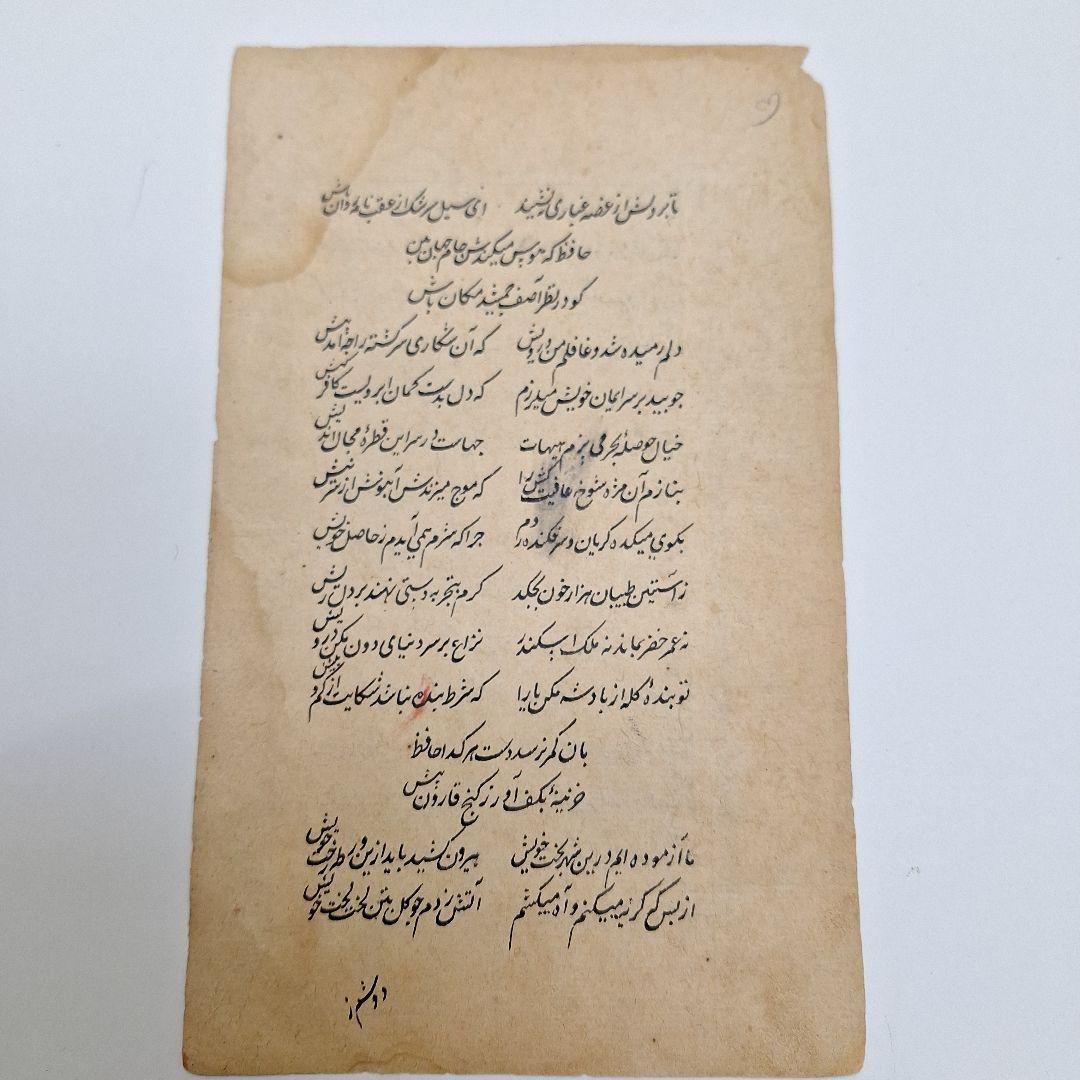 تا بر دلش از غصه غباری ننشیند ای سیل سرشک از عقب نامه روان باش
حافظ که هوس میکندش جام جهان بین
کو در نظر آصف جمشید مکان باش
دلم رمیده شد و غافلم من درویش که آن شکاری سرکشته را چه آمد پیش
چو بید بر سر ایمان خویش میلرزم که دل بدست کمان ابرویست کافر کیش
خیال حوصلهٔ بحر می پزم هیهات چهاست در سر این قطرهٔ محال اندیش
بنازم آن مژه شوخ عافیت کش را که موج میزندش آب نوش از سر نیش
بکوی میکده کریان و سرفکنده روم چرا که شرم همی آیدم ز حاصل خویش
ز آستین طبیبان هزار خون بچکد کرم بتجربه دستی نهند بر دل ریش
نه عمر خضر بماند نه ملک اسکندر نزاع بر سر دنیای دون مکن درویش
تو بندهٔ کله از پادشه مکن یارا که شرط بنده نباشد شکایت از کم
بان کمر نرسد دست هر کدا حافظ
خزینهٔ بکف آور ز کنج قارون بیش
ما آزموده ایم درین شهر بخت خویش بیرون کشید باید ازین ورطه رخت خویش
از بس که کریه میکنم و آه میکشم آتش زدم چو کل بتن لخت لخت خویش